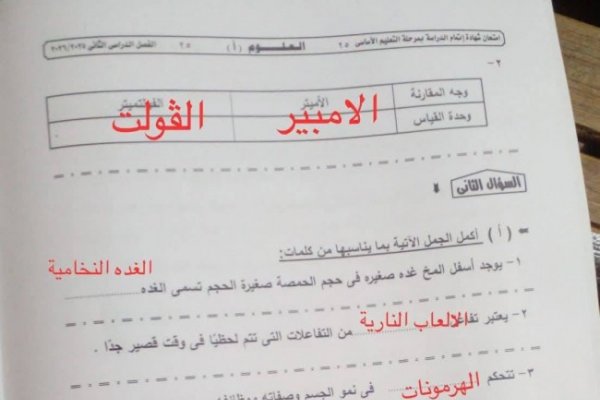 امتحان شهادة إتمام الدراسة بمرحلة التعليم الأساسى ٢٥ العلـــوم (أ) ٢٥ الفصل الدراسى الثانى ٢٠٢٦/٢٠٢٥
٢-
وجه المقارنة الأميتر الفولتميتر
وحدة القياس الامبير الڤولت
السؤال الثانى
(أ) أكمل الجمل الآتية بما يناسبها من كلمات:
الغده النخامية
١- يوجد أسفل المخ غده صغيره فى حجم الحمصة صغيرة الحجم تسمى الغده
٢- يعتبر تفاعل الالعاب النارية من التفاعلات التى تتم لحظيًا فى وقت قصير جدًا .
٣- تتحكم الهرمونات فى نمو الجسم وصفاته ووظائفه